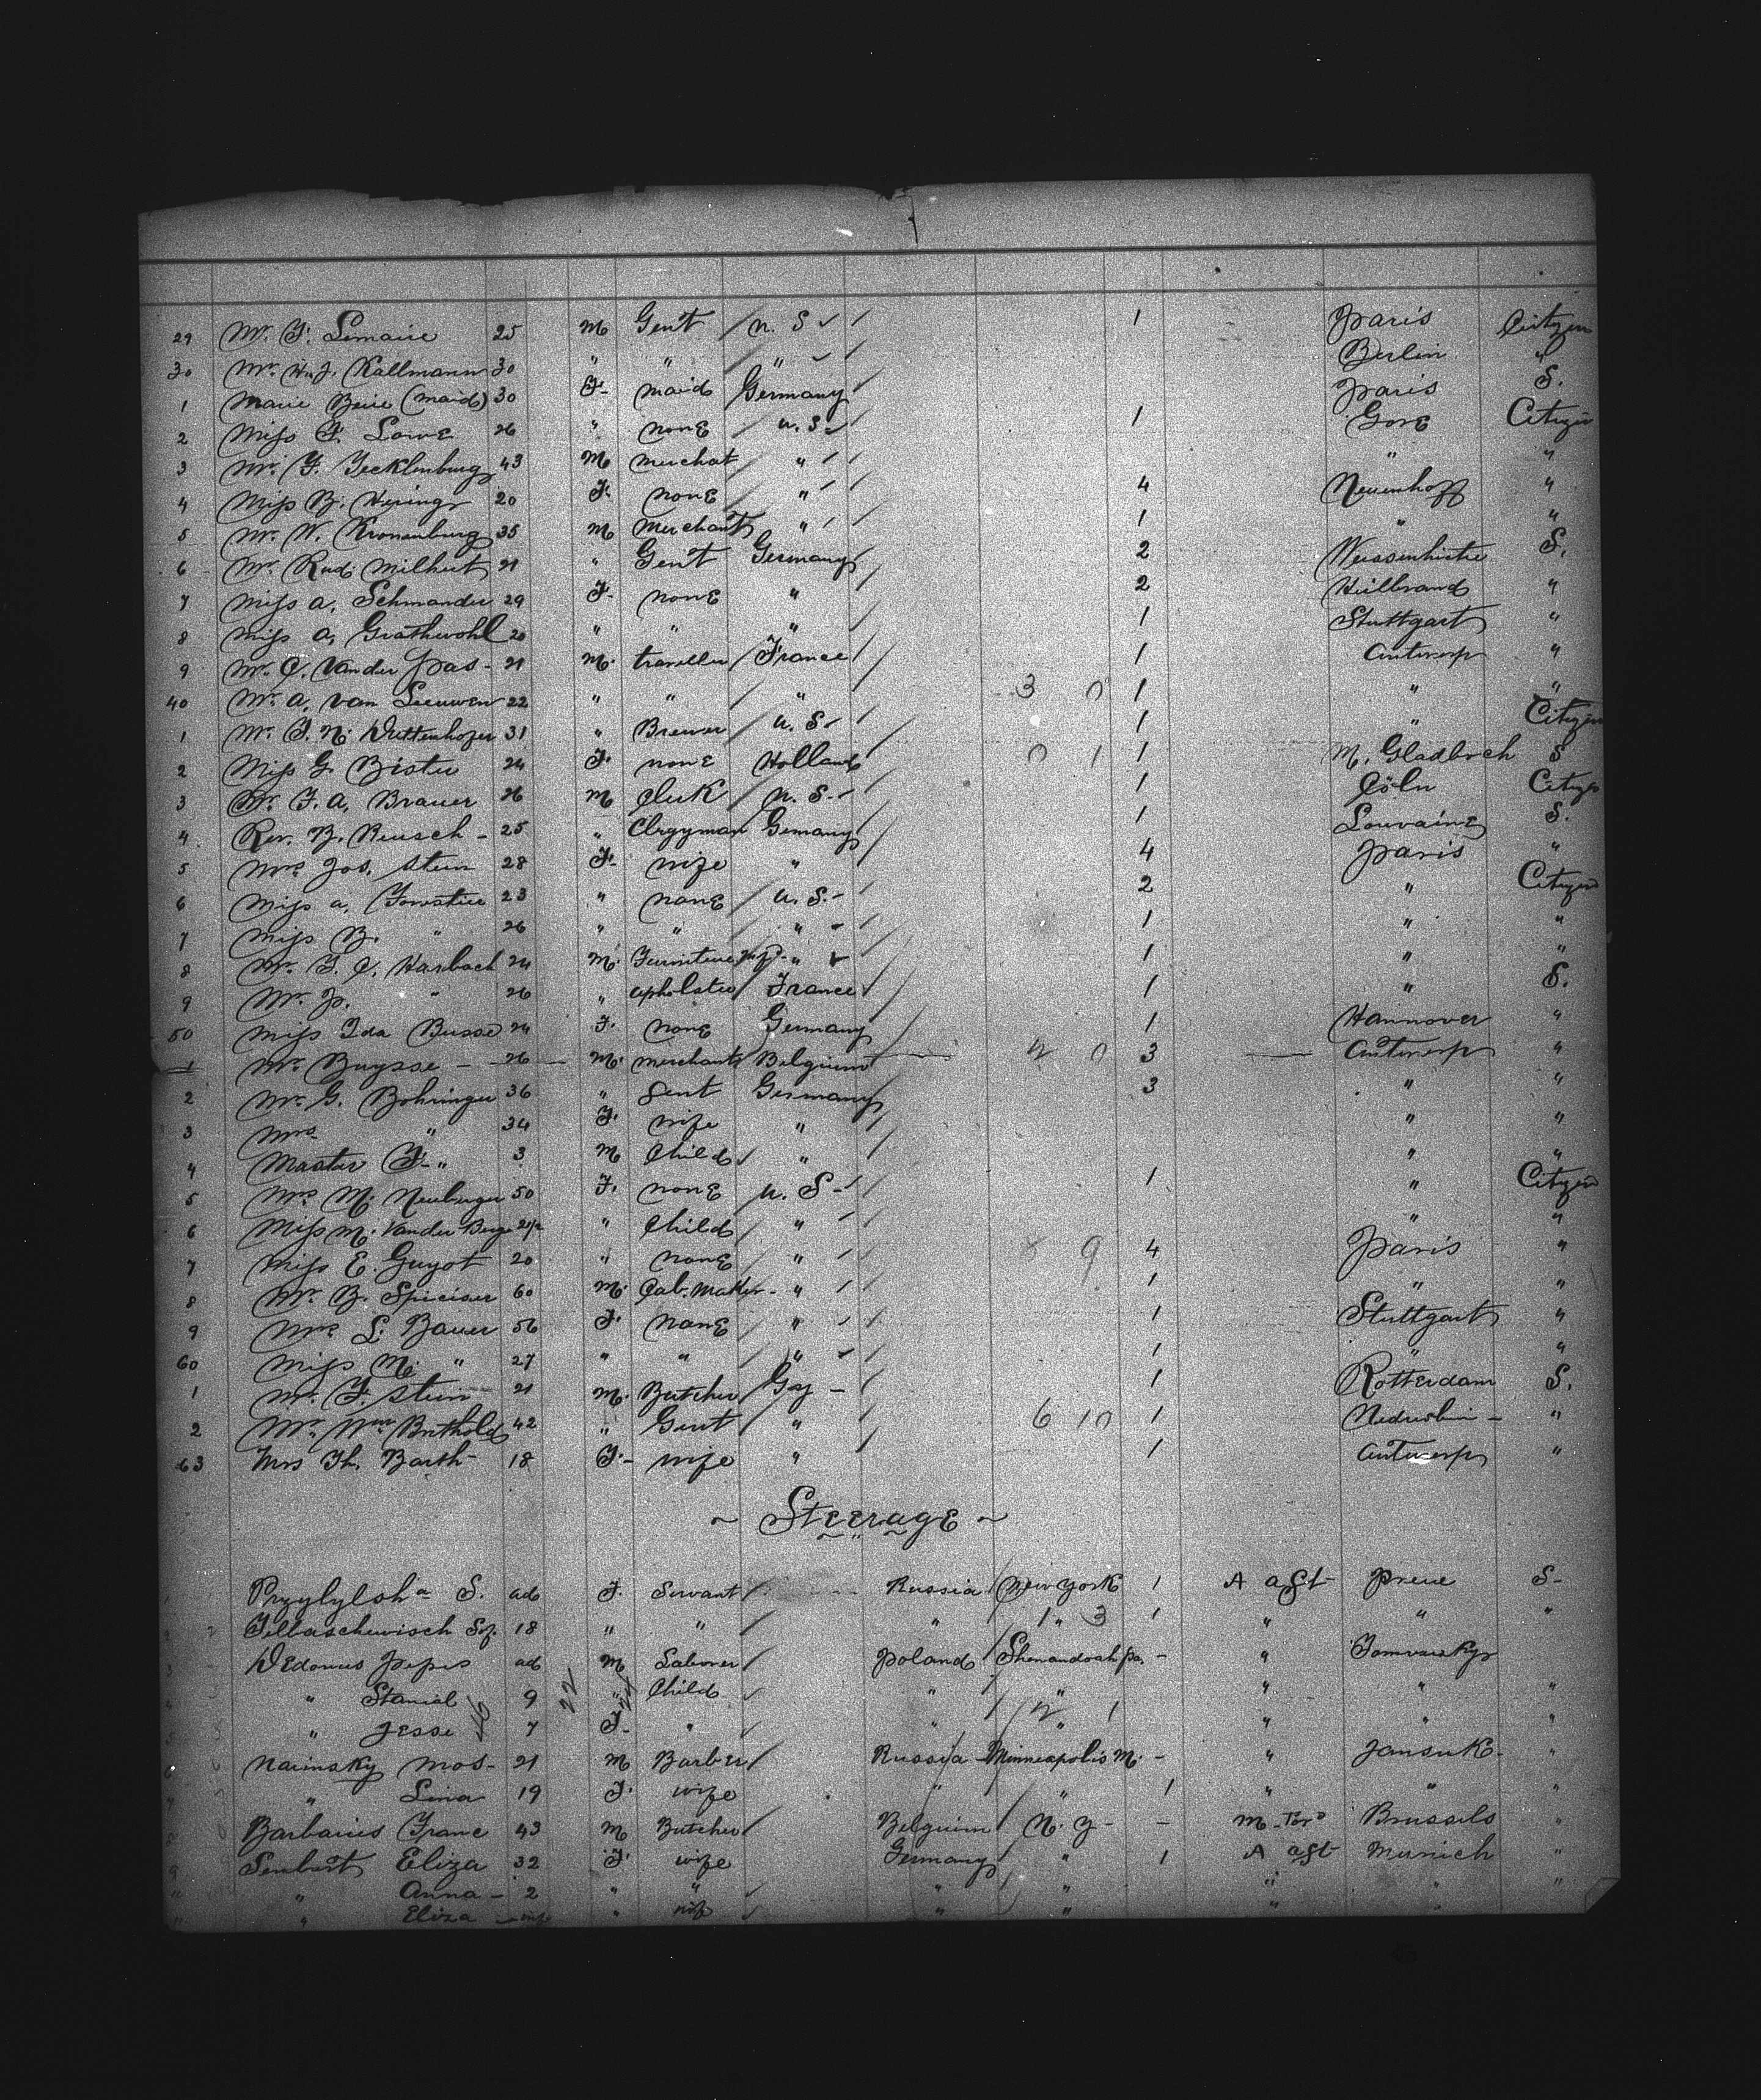 29 Mr. F. Lemaire 25 M Gent U. S 1 Paris Citizen
30 Mr. H. J. Kallmann 30 " " " Berlin "
1 Marie Beie (maid) 30 F. maid Germany Paris S.
2 Miss F. Lowe 26 " none U. S. 1 Gore Citizen
3 Mr. F. Tecklenburg 43 M merchat " " "
4 Miss B. Hering 20 F. none " 4 Neuenhoff "
5 Mr. W. Kronenburg 35 M merchant " 1 " "
6 Mr. Rud. Milhut 21 " Gent Germany 2 S.
7 Miss A. Schmander 29 F. none " 2 Heilbrand "
8 Miss A. Grathwohl 20 " " " 1 Stuttgart "
9 Mr. C. Vander Pas - 21 M. traveller France 1 Antwerp "
40 Mr. A. Van Leeuwen 22 " " " 3 0 1 " "
1 Mr. F. N. Duttenhofer 31 " Brewer U. S 1 " Citizen
2 Miss G. Bister 24 F. none Holland 0 1 1 M. Gladbach S
3 Mr. F. A. Brauer 26 M Clerk U. S. 1 Cöln Citizen
4 Rev. B. Reusch - 25 " Clergyman Germany 1 Louvaine S.
5 Mrs. Jos. Stein 28 F. wife " 4 Paris "
6 Miss A. Forestier 23 " none U. S. 2 " Citizen
7 Miss B. " 26 " " " 1 " "
8 Mr. F. C. Harbach 24 M. Furniture " 1 " "
9 Mr. P. " 26 " upholster France 1 " S.
50 Miss Ida Busse 24 F. none Germany 1 Hannover "
1 Mr. Buysse - 26 M. merchant Belgium 4 0 3 Antwerp "
2 Mr. G. Bohringer 36 " Gent Germany 3 " "
3 Mrs. " 34 F. wife " " "
4 Master F. " 3 M Child " " "
5 Mrs. M. Neuburger 50 F. none U. S 1 " Citizen
6 Miss M. Vander Berge 2 1/2 " Child " " "
7 Miss E. Guyot 20 " none " 9 4 Paris "
8 Mr. B. Spieiser 60 M. Cab. Maker - " 1 " "
9 Mrs. L. Bauer 56 F. none " 1 Stuttgart "
60 Miss M. " 27 " " " 1 " "
1 Mr. F. Stein 21 M. Butcher Gy - 1 Rotterdam S.
2 Mr. Wm Berthold 42 " Gent " 6 10 1 "
63 Mrs Th. Barth - 18 F. - wife " 1 Antwerp "
~ Steerage ~
S. ad F. Servant Russia New York 1 A aft S -
18 " " " 1 " 3 1 " " "
ad M Laborer Poland Shenandoah Pa. - "
" Stanisl 9 " Child " " " " "
" Jesse 7 F. " " " " " "
Nainsky Mos - 21 M Barber Russia Minneapolis M. - " "
" Lina 19 F. wife " " 1 " " "
Barbaries Franc 43 M Butcher Belgium N. Y - - M Brussels "
Senbert Eliza 32 F. wife Germany " 1 A aft Munich "
" Anna - 2 " " " " " " "
" Eliza - inf " " " " "